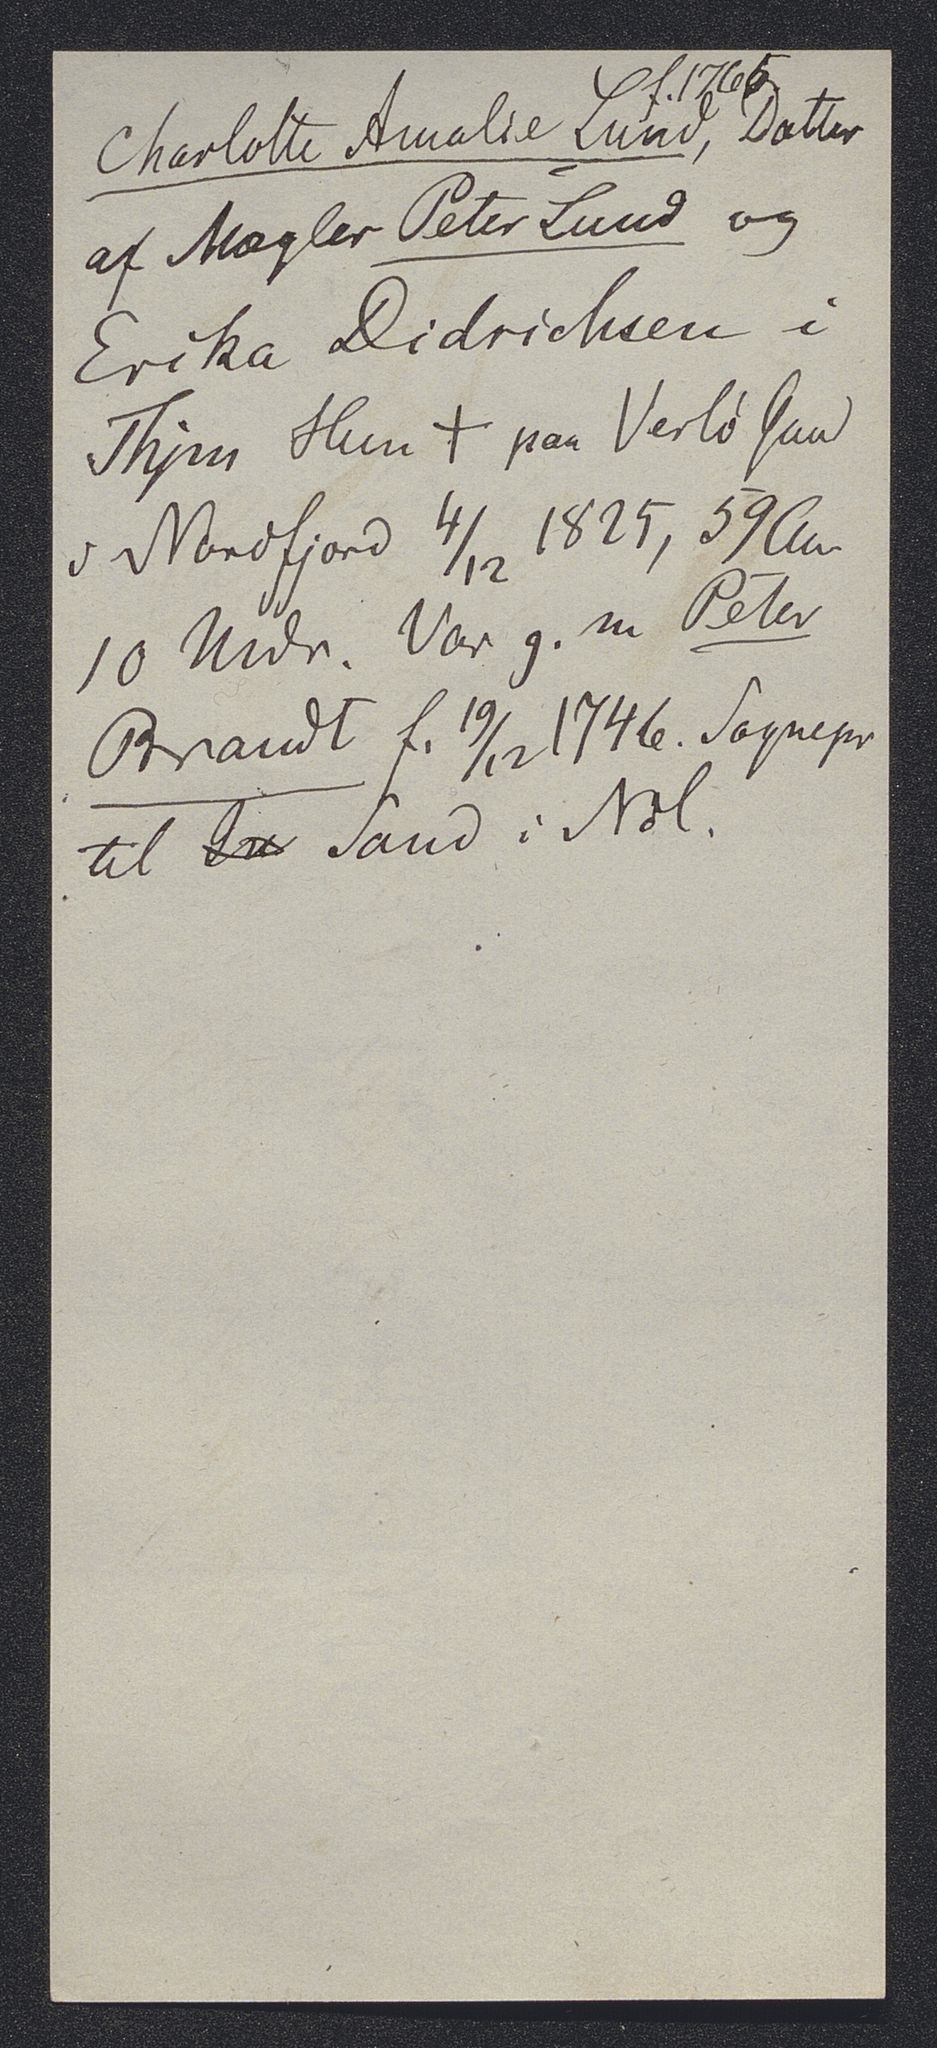 f. 1765
Charlotte Amalie Lund, Datter
af Mægler Peter Lund og
Erika Didrichsen i
Thjm Hun † paa Verlö Gaard
i Nordfjord 4/12 1825, 59 Aar
10 Mdr. Var g. m Peter
Brandt f. 19/12 1746. Sognepr
til Sand i Ndl.